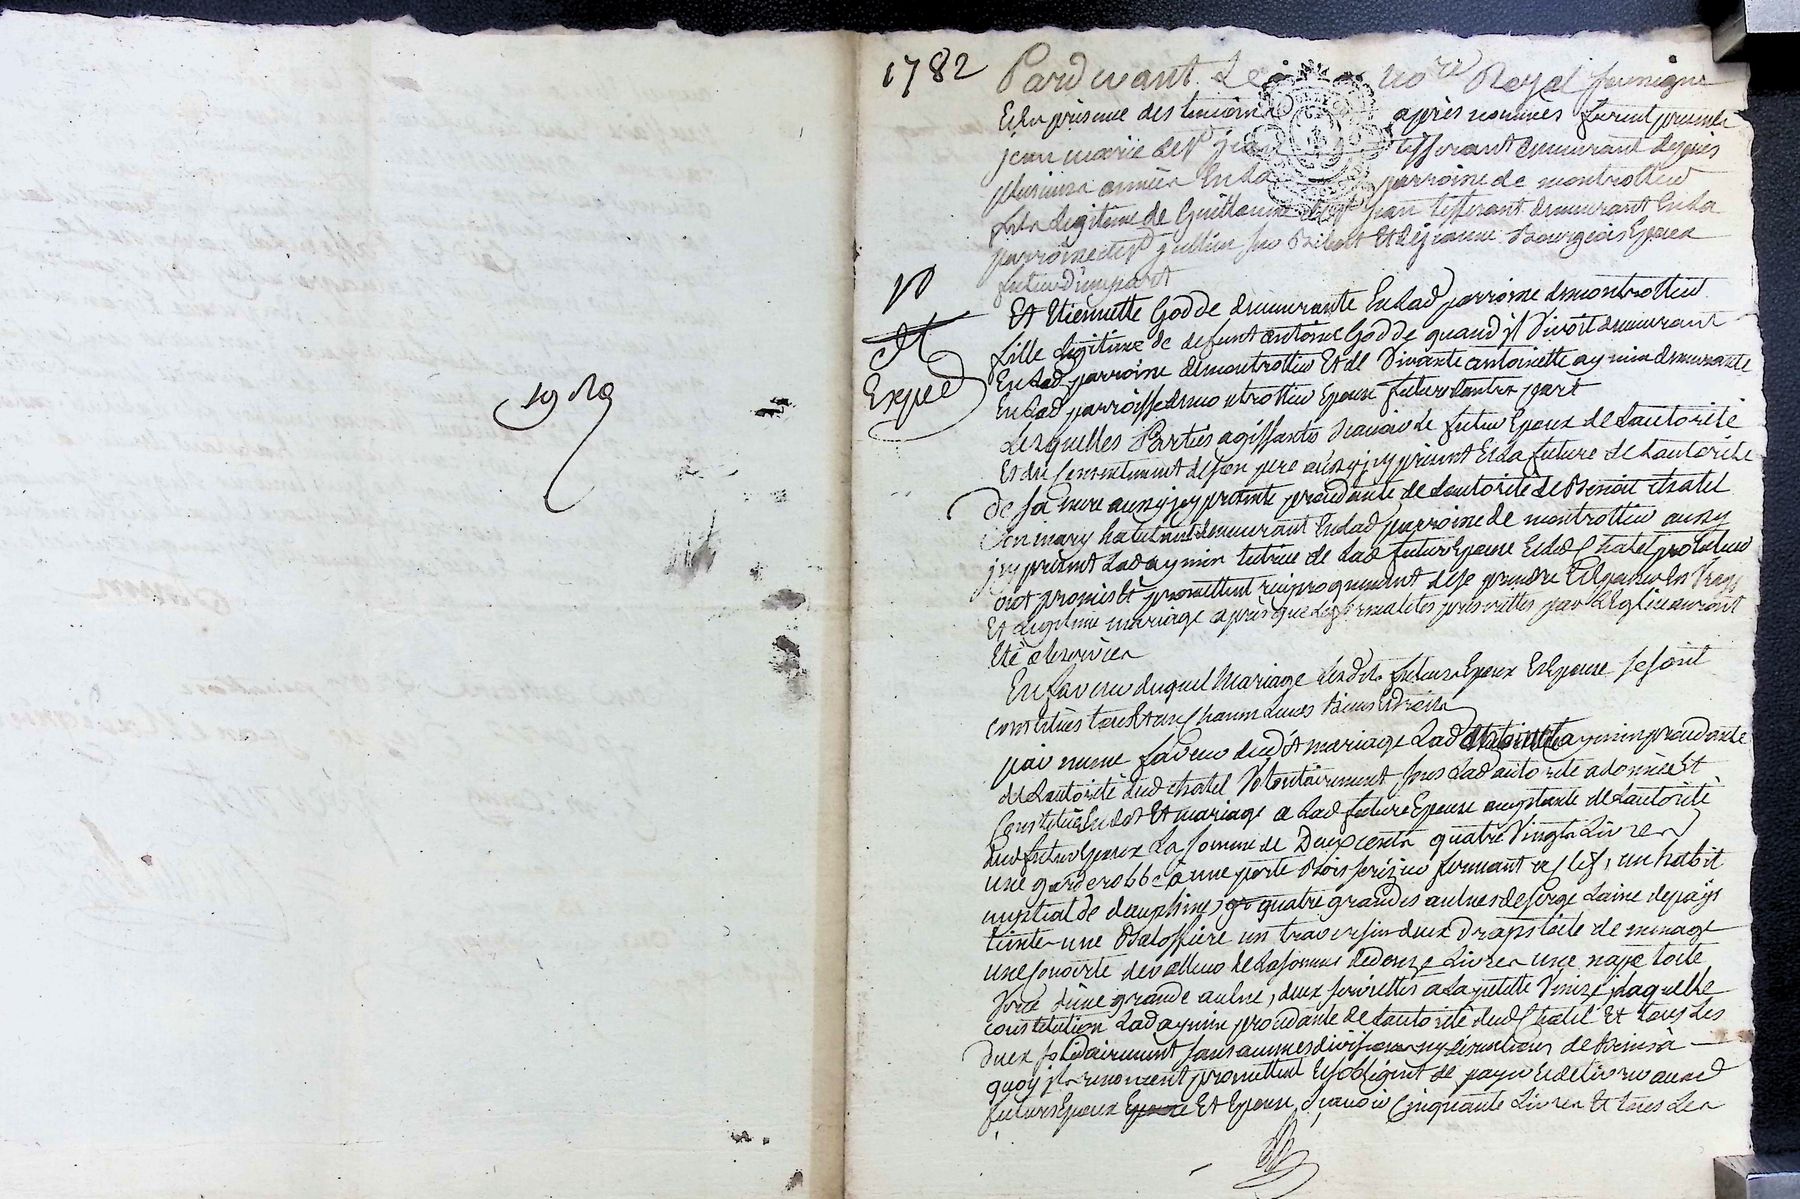 19 Re
1782
Pardevant Le no.re Royal soussigné
Et En présence des temoins après nommés furent présents
jean marie de st jean tisserant demeurant depuis
plusieurs années En La parroisse de montrottier
fils legitime de Guillaume de st jean tisserant demeurant En La
parroisse de st jullien sur Bibost Et de jeanne Bourgeois Epoux
futur d'une part
Et Etiennette Godde demeurante En Lad parroisse de montrottier
Exped
fille legitime de defunt antoine Godde quand jl vivoit demeurant
En Lad parroisse de montrottier Et de vivante antoinette aymin demeurante
En Lad parroisse de montrottier Epouse future d'autre part
Lesquelles Parties agissants scavoir le futur Epoux de L'autorité
Et du Consentement de son pere aussy jcy présent Et La future de L'autorité
de sa mere aussy jcy présente procédante de L'autorité de Benoit chatel
son mary habitant demeurant En Lad parroisse de montrottier aussy
jcy présent Lad aymin tutrice de Lad future Epouse Et Led Chatel protuteur
ont promis Et promettent réciproquement de se prendre Et Epouser En Vray
Et Legitime mariage après que Les formalités prescrittes par L'Eglise auront
Eté observées
En faveur duquel Mariage Lesdits futurs Epoux Et Epouse se sont
constitués tous Et un Chacun Leurs Biens Et droits
par meme faveur dud't mariage Lad antoinette aymin procédante
de L'autorité dud chatel volontairement sous Lad autorité a donné Et
Constitué En dot Et mariage a Lad future Epouse acceptante de L'autorité
dud futur Epoux La somme de Deux cents quatre Vingts Livres
une garderobbe a une porte Bois serizier fermant a Clef, un habit
nuptial de dauphine, quatre grandes aulnes de serge Laine de pays
teinte une Balossière un traversin deux draps toile de menage
une Couverte de valleur de La somme de douze Livres une nape toile
d'une grande aulne, deux serviettes a La petite Venise, Laquelle
constitution Lad aymin procédante de L'autorité dud Chatel Et tous Les
deux solidairement sans aucunes division ny discution de Biens à
quoy jls renoncent promettent Et s'obligent de payer Et delivrer auxd
futurs Epoux Epouse Et Epouse, scavoir Cinquante Livres Et tous Les